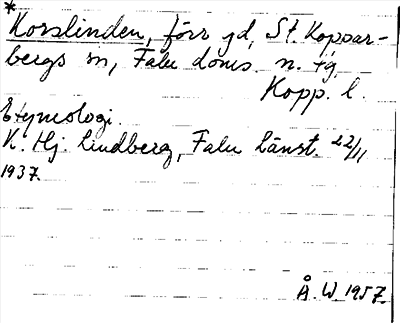 *
Korslinden, förr gd, St. Koppar-
bergs sn, Falu doms. n. tg
Kopp. l.
Etymologi.
K. Hj. Lindberg, Falu Länst. 22/11
1937.
Å. W. 1957.